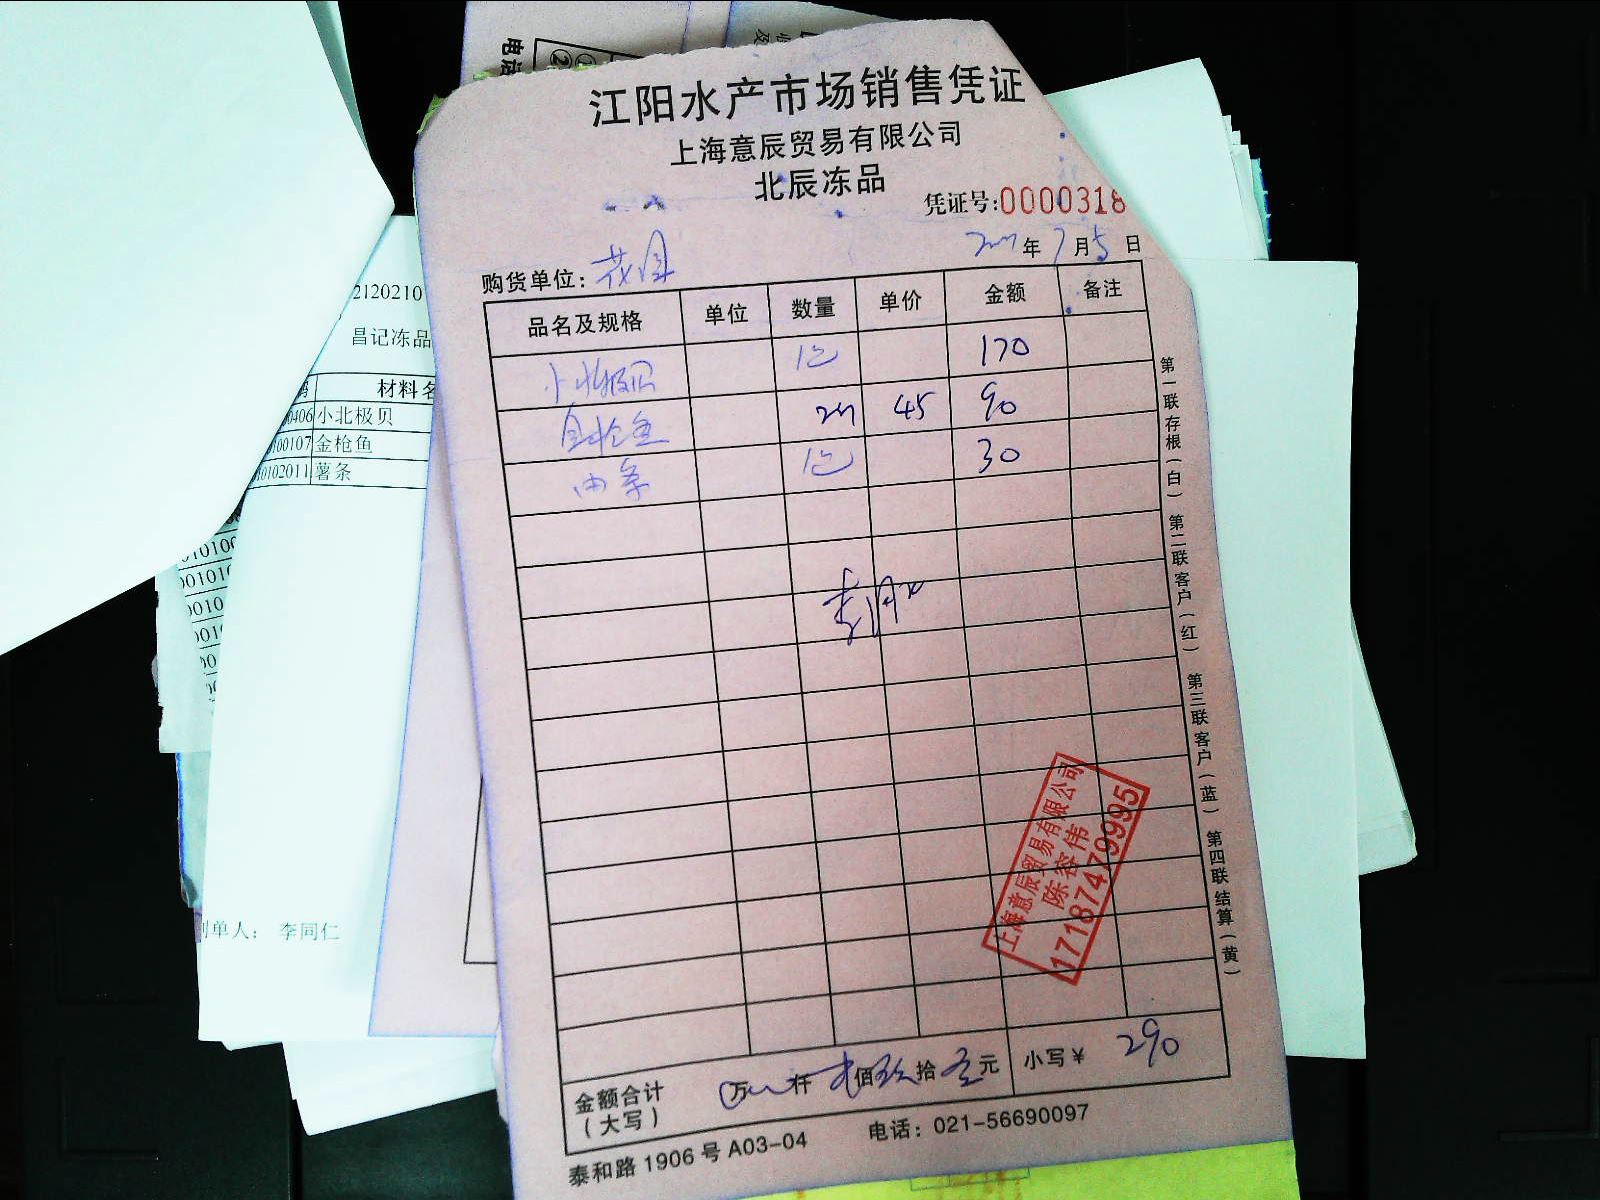 江阳水产市场销售凭证
上海意辰贸易有限公司
北辰冻品
凭证号:0000318
年7月5日
购货单位: 花园
品名及规格 单位 数量 单价 金额 备注
小北极贝 1包 170
金枪鱼 2斤 45 90
1包 30
金额合计(大写) 万 仟 佰 拾 元 小写¥ 290
泰和路1906号A03-04 电话: 021-56690097
第一联存根(白) 第二联客户(红) 第三联客户(蓝) 第四联结算(黄)
上海意辰贸易有限公司
陈容伟
17187479995
电话
2120210
昌记冻品
材料名
0406 小北极贝
00107 金枪鱼
0102011 薯条
制单人: 李同仁